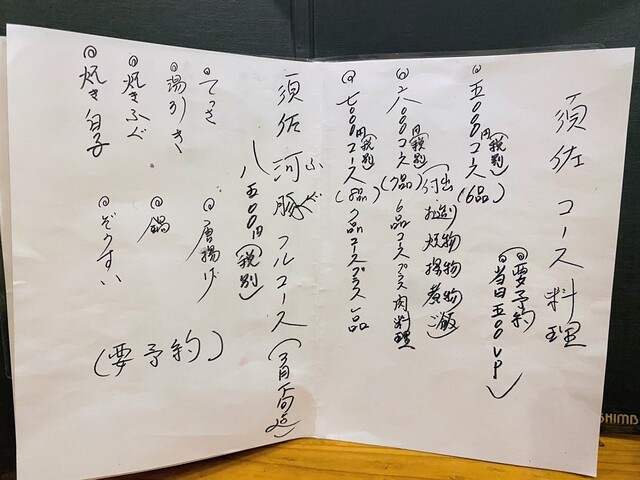 須佐 コース料理
(要予約
当日五〇〇UP)
◎五〇〇〇円(税別)コース(6品)
付出 お造り 焼物 揚物 煮物 ご飯
◎六〇〇〇円(税別)コース(7品) 6品コースプラス肉料理
◎七〇〇〇円(税別)コース(8品) 7品コースプラス一品
須佐 河豚 フルコース
ふぐ
八五〇〇円(税別)
◎てっさ
◎唐揚げ
◎湯引き
◎鍋
◎焼きふぐ
◎ぞうすい
◎焼き白子
(要予約)
SHIMB